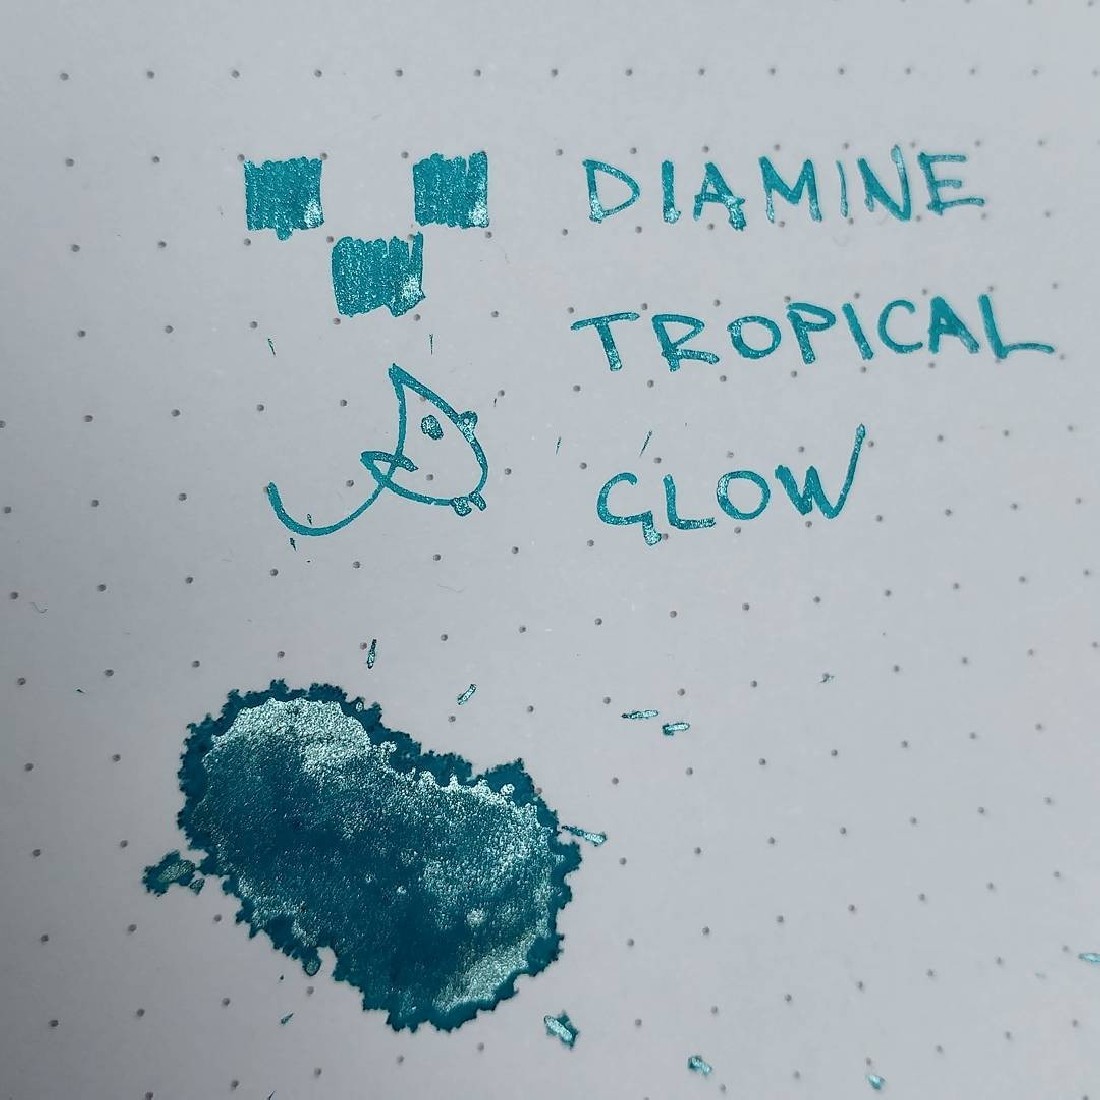 DIAMINE
TROPICAL
GLOW